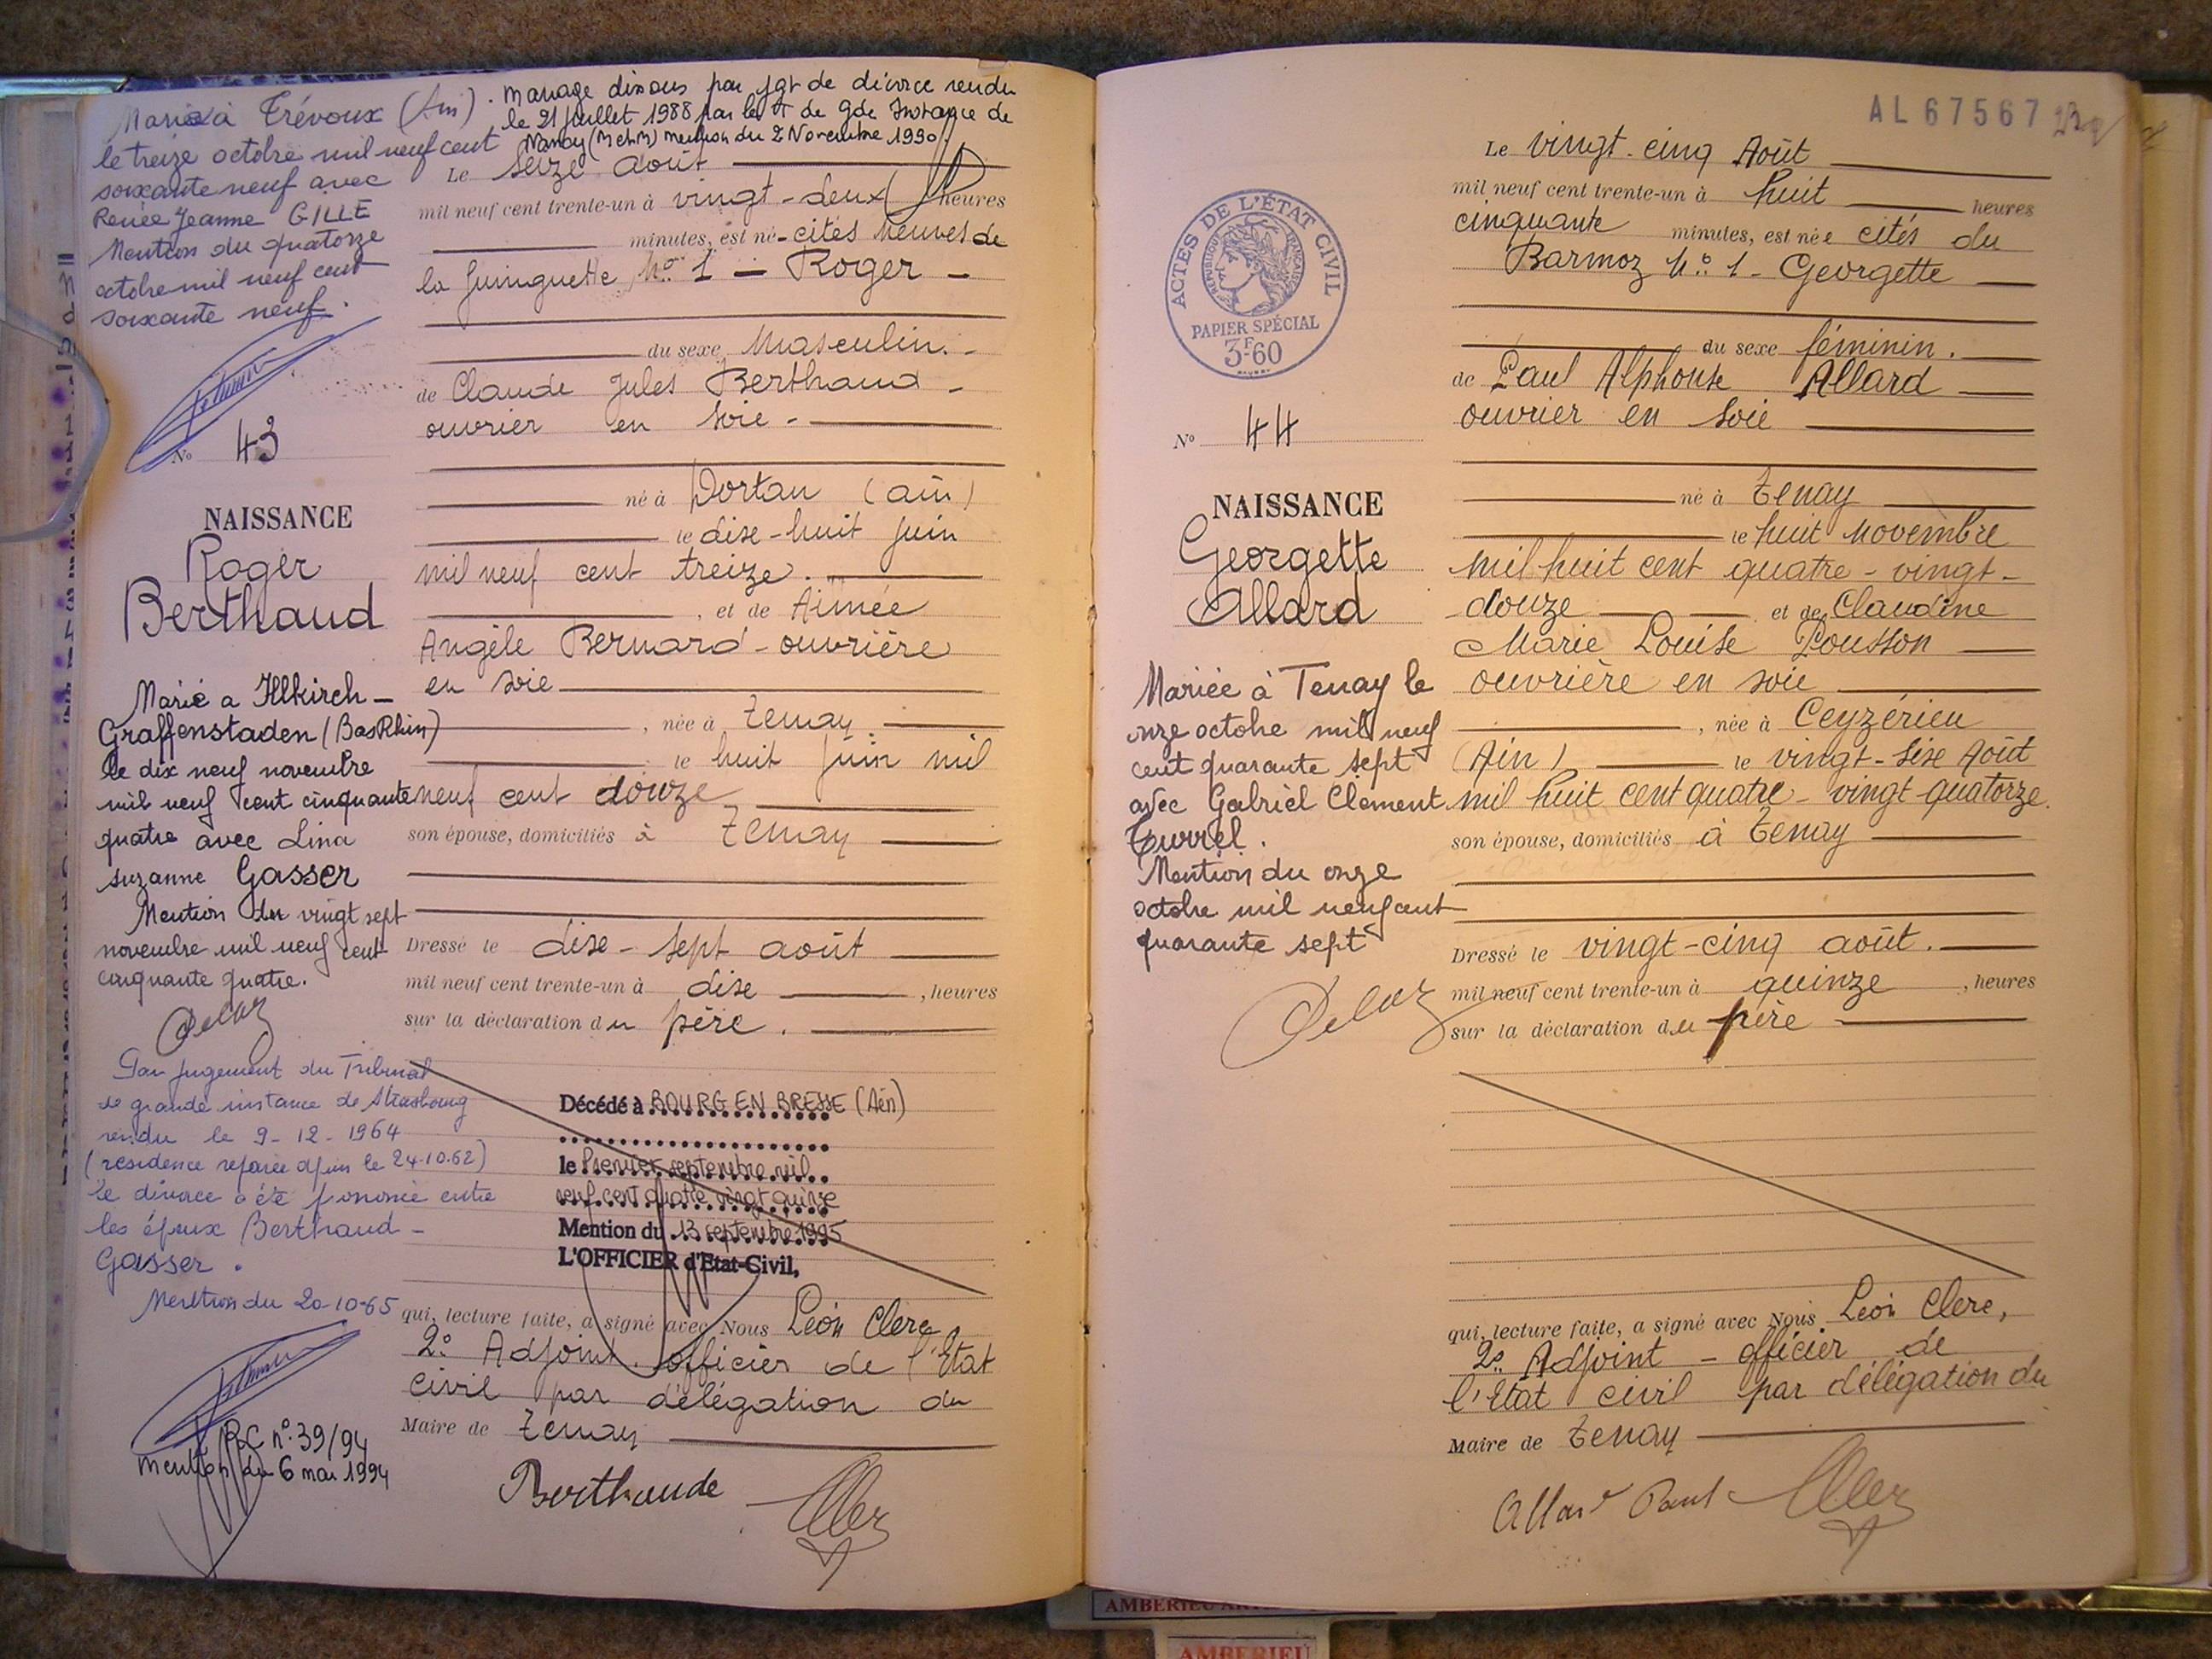 Marié à Trévoux (Ain)
le treize octobre mil neuf cent
soixante neuf avec
Renée Jeanne GILLE
Mention du quatorze
octobre mil neuf cent
soixante neuf.
. Mariage dissous par jgt de divorce rendu
le 21 juillet 1988 par le T de gde Instance de
Nancy (M et M) mention du 2 Novembre 1990
N° 43
NAISSANCE
Roger
Berthaud
Marié a Illkirch-
Graffenstaden (Bas Rhin)
le dix neuf novembre
mil neuf cent cinquante
quatre avec Lina
suzanne Gasser
Mention du vingt sept
novembre mil neuf cent
cinquante quatre.
Par jugement du Tribunal
de grande instance de Strasbourg
rendu le 9-12-1964
(résidence séparée depuis le 24.10.62)
le divorce a été prononcé entre
les époux Berthaud-
Gasser.
Mention du 20-10-65
RC n° 39/94
mention du 6 mai 1994
Le seize août
mil neuf cent trente-un à vingt-deux heures
minutes, est né - cités neuves de
la Guinguette N° 1 - Roger -
du sexe Masculin. -
de Claude Jules Berthaud -
ouvrier en soie -
né à Dortan (ain)
le dise-huit juin
mil neuf cent treize.
, et de Aimée
Angèle Bernard - ouvrière
en soie
, née à Tenay
le huit juin mil
neuf cent douze
son épouse, domiciliés à Tenay
Dressé le dise-sept août
mil neuf cent trente-un à dise , heures
sur la déclaration du père.
Décédé à BOURG EN BRESSE (Ain)
le Premier septembre mil
neuf cent quatre vingt quinze
Mention du 13 septembre 1995
L'OFFICIER d'Etat-Civil,
qui, lecture faite, a signé avec Nous Léon Clerc
2° Adjoint. officier de l'Etat
civil par délégation du
Maire de Tenay
Berthaude
AL 67567
ACTES DE L'ÉTAT CIVIL
RÉPUBLIQUE FRANÇAISE
PAPIER SPÉCIAL
3F60
N° 44
NAISSANCE
Georgette
Allard
Mariée à Tenay le
onze octobre mil neuf
cent quarante sept
avec Gabriel Clement
Turrel.
Mention du onze
octobre mil neuf cent
quarante sept
Le vingt-cinq Août
mil neuf cent trente-un à huit heures
cinquante minutes, est née cités du
Barmoz N° 1 - Georgette
du sexe féminin.
de Paul Alphonse Allard
ouvrier en soie
né à Tenay
le huit novembre
mil huit cent quatre-vingt-
douze et de Claudine
Marie Louise Pousson
ouvrière en soie
, née à Ceyzérieu
(Ain) le vingt-sise Août
mil huit cent quatre-vingt-quatorze.
son épouse, domiciliés à Tenay
Dressé le vingt-cinq août.
mil neuf cent trente-un à quinze , heures
sur la déclaration du père
qui, lecture faite, a signé avec Nous Léon Clerc,
2e Adjoint - officier de
l'Etat civil par délégation du
Maire de Tenay
Allard Paul
AMBERIEU
AMBERIEU